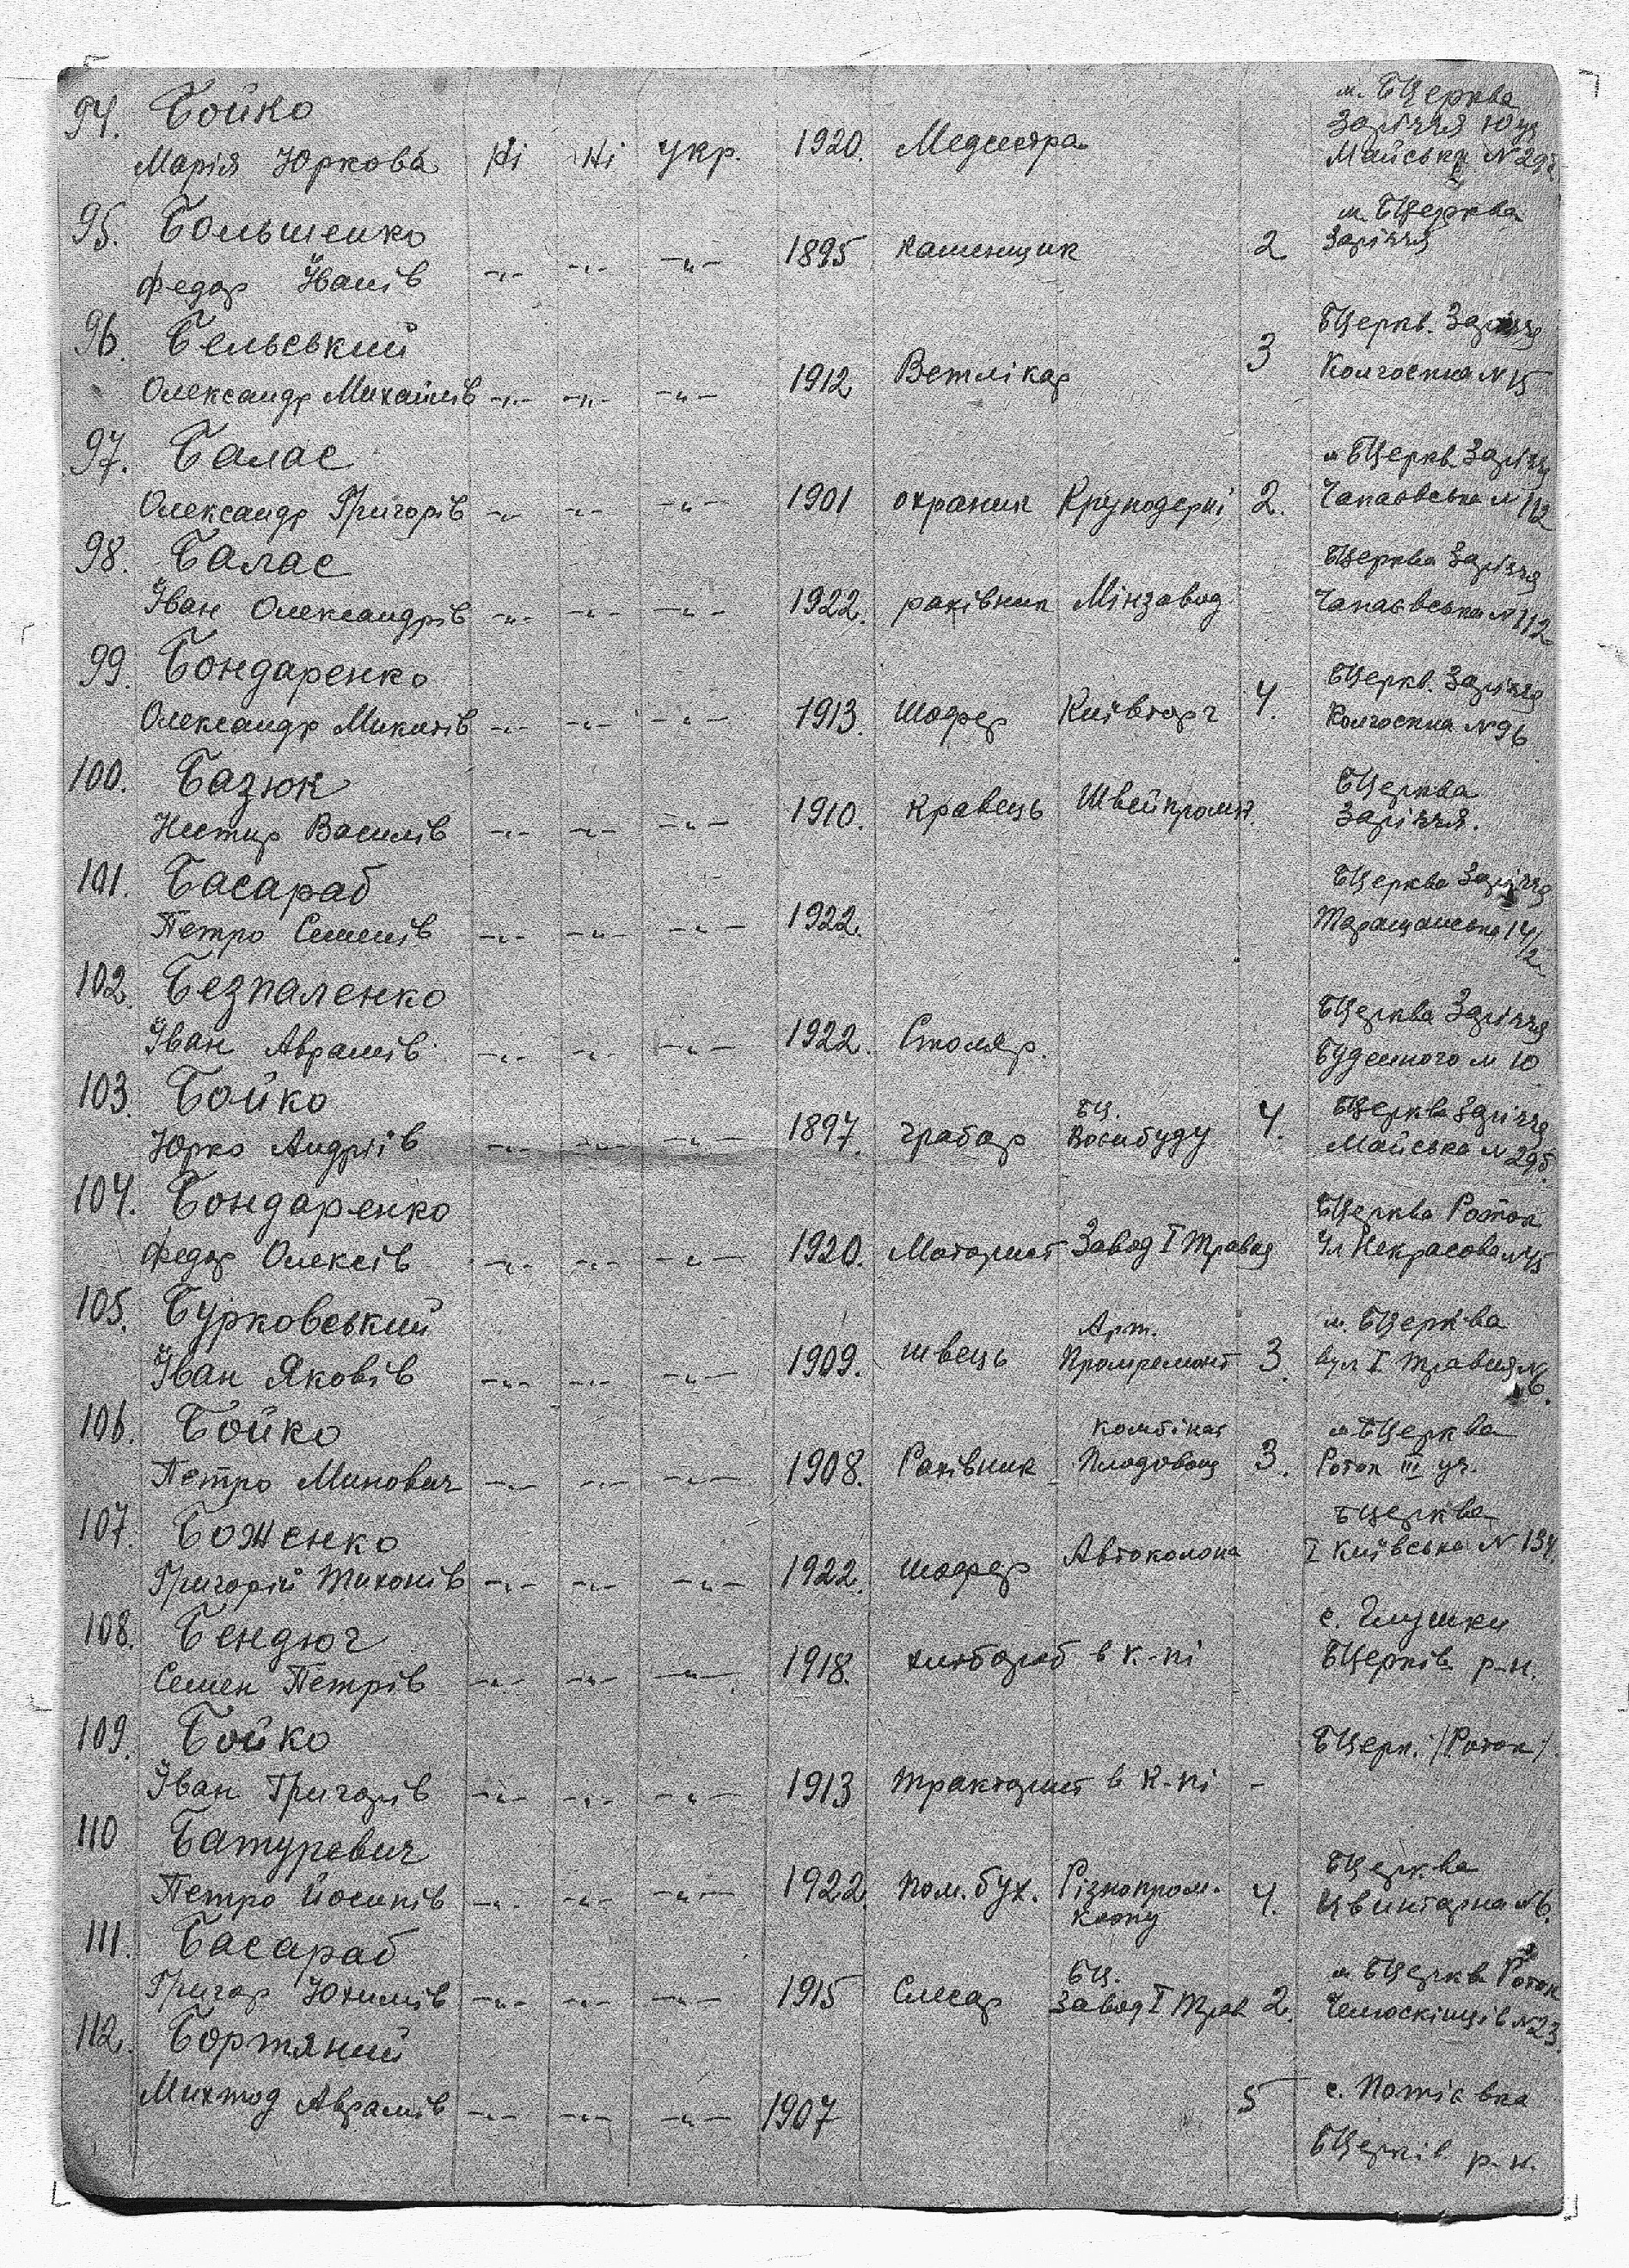 94. Бойко
Марія Юркова Ні Ні Укр. 1920. Медсестра м. БЦерква Заріччя Майська N 29
95. Большенко
Федор Іванів -„- -„- -„- 1895 каменщик 2 м. БЦерква Заріччя
96. Бельський
Олександр Михайлів -„- -„- -„- 1912 Ветлікар 3 БЦеркв. Заріччя Колгоспна N 15
97. Балас
Олександр Григорів -„- -„- -„- 1901 охраник Круподерні 2. м БЦеркв Заріччя Чапаєвська N 112
98. Балас
Іван Олександрів -„- -„- -„- 1922. рахівник Мінзавод БЦерква Заріччя Чапаєвська N 112
99. Бондаренко
Олександр Микитів -„- -„- -„- 1913. Шофер Київторг 4. БЦеркв. Заріччя Колгоспна N 96
100. Базюк
Нестир Василів -„- -„- -„- 1910. кравець Швейпромк. БЦерква Заріччя.
101. Басараб
Петро Семенів -„- -„- -„- 1922. БЦерква Заріччя Таращанська 14/2
102. Безпаленко
Іван Аврамів -„- -„- -„- 1922. Столяр. БЦерква Заріччя Будённого N 10
103. Бойко
Юрко Андріїв -„- -„- -„- 1897. грабар БЦ. Воєнбуду 4. БЦерква Заріччя Майська N 295
104. Бондаренко
Федор Олексів -„- -„- -„- 1920. Моторист Завод I Травня БЦерква Роток Ул Некрасова N 45
105. Бурковський
Іван Яковів -„- -„- -„- 1909. швець Арт. Промремонт 3. м. БЦерква вул I Травня N 6.
106. Бойко
Петро Минович -„- -„- -„- 1908. Рахівник Комбінат Плодовощ 3. м БЦерква Роток III уч.
107. Боженко
Григорій Тихонів -„- -„- -„- 1922. шофер Автоколона БЦерква I Київська N 134.
108. Бендюг
Семен Петрів -„- -„- -„- 1918. хлібороб в к-пі с. Глушки БЦерків р-н.
109. Бойко
Іван Григорів -„- -„- -„- 1913 тракторист в к-пі - БЦерк. /Роток/.
110 Батуревич
Петро Йосипів -„- -„- -„- 1922. пом. бух. Різнопром. 4. БЦерква Цвинтарна N 6.
111. Басараб
Григор Юхимів -„- -„- -„- 1915 Слесар БЦ. Завод I Трав 2. м БЦерква Роток Челюскінців N 23.
112. Бортяний
Михтод Аврамів -„- -„- -„- 1907 5 с. Потіївка БЦерків р-н.